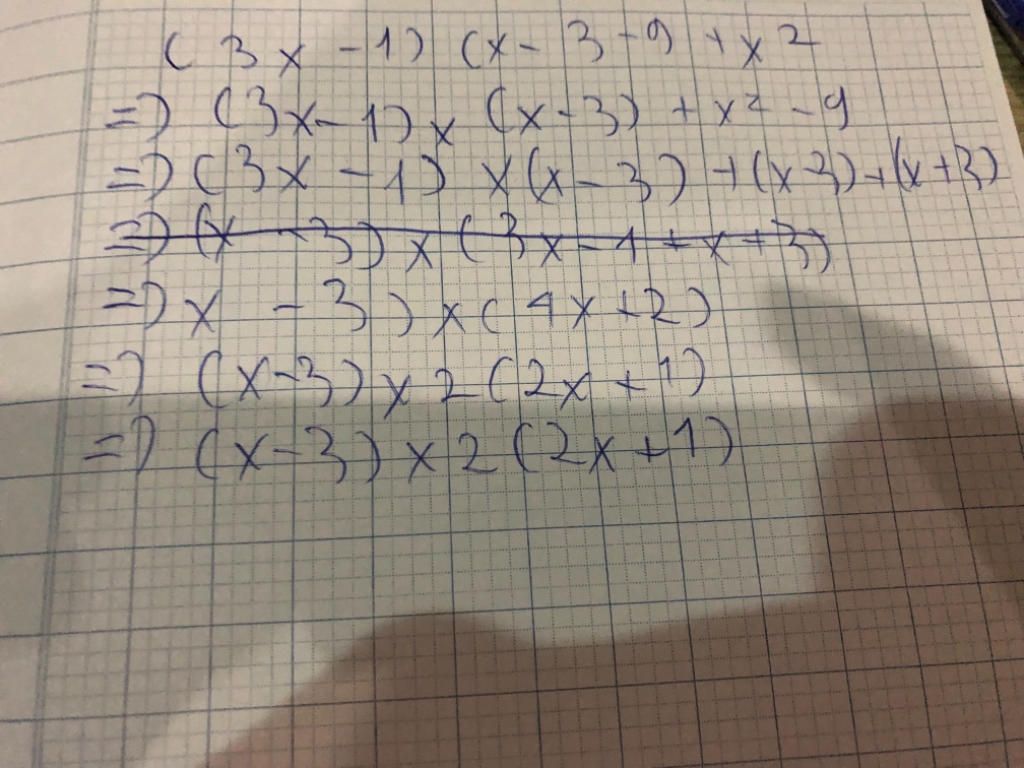 ( 3x - 1) (x - 3 - 9 + x2
=> (3x - 1) x (x - 3) + x2 - 9
=> (3x - 1) x (x - 3) + (x-3) + (x+3)
=> (x - 3) x (3x - 1 + x + 3)
=> x - 3 ) x ( 4x + 2)
=> (x - 3) x 2 (2x + 1)
=> (x - 3) x 2 (2x + 1)